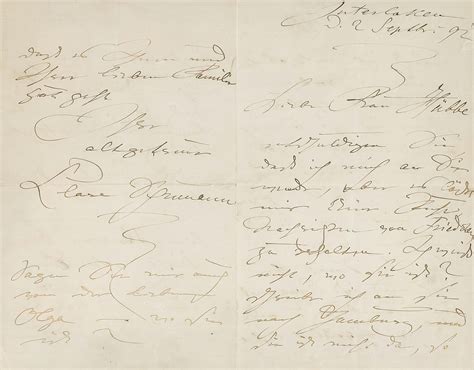 Interlaken
d. 2 Septbr. 92
Liebe Frau
entschuldigen Sie
daß ich mich an Sie
wende, aber es läßt
mir keine
von
zu erhalten.
nicht, wo sie ist?
schreibe ich an sie
nach Hamburg, und
sie ist nicht da, so
daß es Ihnen und
Ihrer lieben Familie
gut geht
Ihre
altgetreue
Clara Schumann
Sagen Sie mir auch
von der lieben
Olga – wo sie
ist?